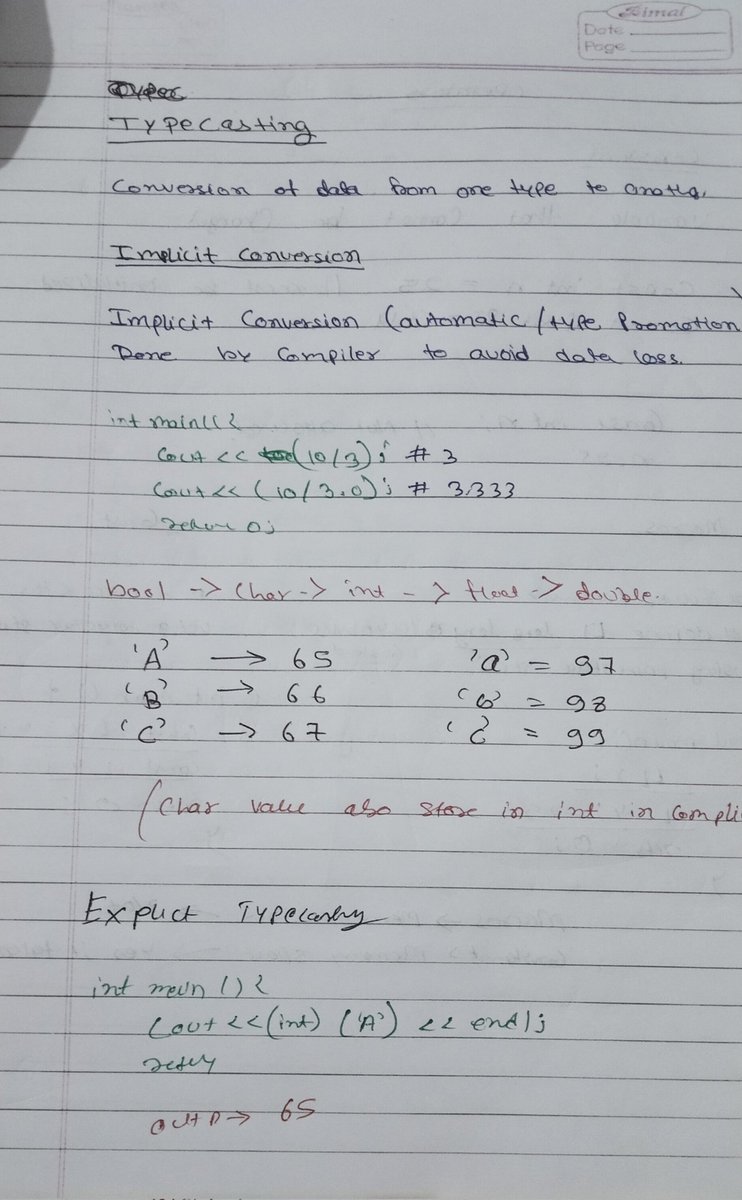 Bimal
Date
Page
Typec
Typecasting
Conversion of data from one type to
Implicit conversion
Implicit Conversion (automatic / type Promotion
Done by Compiler to avoid data loss.
int main(({
Cout << (10/3); # 3
Cout << (10/3.0); # 3.333
return 0;
bool -> Char -> int -> float -> double.
'A' -> 65 'a' = 97
'B' -> 66 'b' = 98
'C' -> 67 'c' = 99
(Char value also store in int in Compli
Explict Typecasting
int main () {
Cout <<(int) ('A') << endl;
outp -> 65